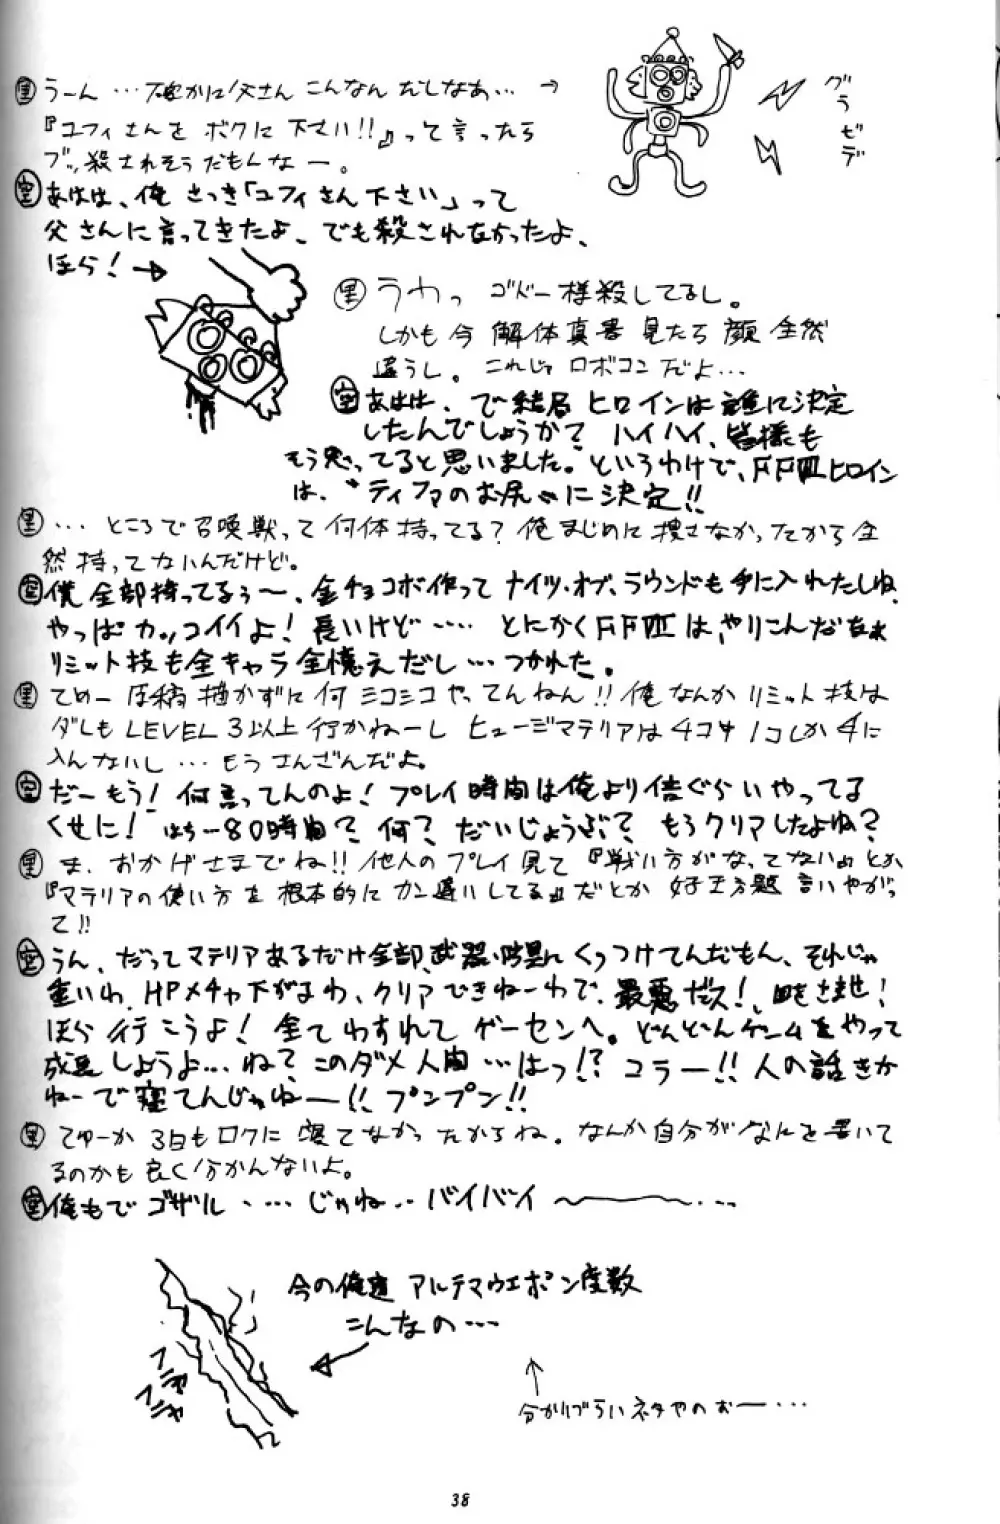 里 うーん…確かに父さんこんなんだしなあ… →
『ユフィさんをボクに下さい!!』って言ったら
ブッ殺されそうだもんなー。
グラ
ゼデ
空 あはは、俺さっき「ユフィさん下さい」って
父さんに言ってきたよ、でも殺されなかったよ、
ほら! →
里 うわっ ゴドー様殺してるし。
しかも今解体真書見たら顔全然
違うし。これじゃロボコンだよ…
空 あはは、で結局ヒロインは誰に決定
したんでしょうか? ハイハイ、皆様も
もう思ってると思いました。というわけで、FFⅦヒロイン
は、〝ティファのお尻〟に決定!!
里 …ところで召喚獣って何体持ってる?俺まじめに捜さなかったから全
然持ってないんだけど。
空 僕全部持ってるぅ〜、金チョコボ作ってナイツ・オブ・ラウンドも手に入れたしね、
やっぱカッコイイよ!長いけど…… とにかくFFⅦは、やりこんだなぁ
リミット技も全キャラ全憶えだし…つかれた。
里 てめー原稿描かずに何ミコミコやってんねん!!俺なんかリミット技は
ダレもLEVEL3以上行かねーしヒュージマテリアは4コ中1コしか手に
入んないし…もうさんざんだよ。
空 だーもう!何言ってんのよ!プレイ時間は俺より倍ぐらいやってる
くせに!はちー80時間?何?だいじょうぶ?もうクリアしたよね?
里 ま、おかげさまでね!!他人のプレイ見て『戦い方がなってない』とか
『マテリアの使い方を根本的にカン違いしてる』だとか好き放題言いやがっ
て!!
空 うん、だってマテリアあるだけ全部、武器・防具にくっつけてんだもん、それじゃ
重いわ、HPメチャ下がるわ、クリアできねーわで、最悪だス!、目をさませ!
ほら行こうよ!全てわすれてゲーセンへ。どんどんゲームをやって
成長しようよ…ね?このダメ人間…はっ!?コラー!!人の話きか
ねーで寝てんじゃねー!!プンプン!!
里 てゆーか3日もロクに寝てなかったからね。なんか自分がなにを書いて
るのかも良く分かんないよ。
空 俺もでゴザル……じゃね..バイバイ〜――…
今の俺達アルテマウエポン度数
こんなの…
フニャ
フニャ
↑
分かりづらいネタやのぉー…
38